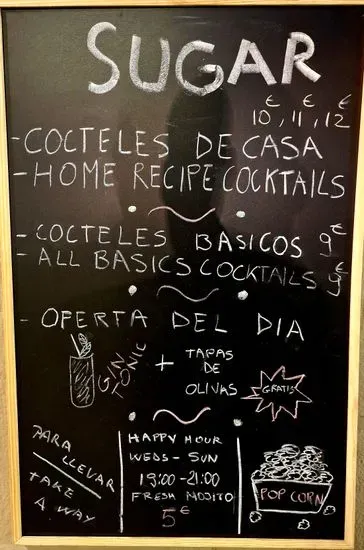 SUGAR
10€, 11€, 12€
- COCTELES DE CASA
- HOME RECIPE COCKTAILS
- COCTELES BASICOS 9€
- ALL BASICS COCKTAILS 9€
- OFERTA DEL DIA
GIN TONIC
+ TAPAS
DE
OLIVAS
GRATIS
PARA
LLEVAR
TAKE
A WAY
HAPPY HOUR
WEDS - SUN
19:00-21:00
FRESH MOJITO
5€
POP CORN